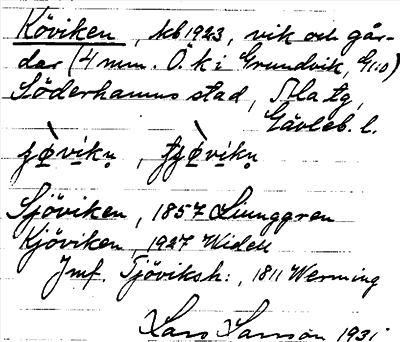 Köviken, kb 1923, vik och går-
dar (4 mm. Ö. k i Grundvik, G11:0)
Söderhamns stad, Ala tg,
Gävleb. l.
Sjöviken, 1857 Ljunggren
Kjöviken, 1927 Widell
Jmf. Tjöviksh:, 1811 Werming
Lars Larsson 1931